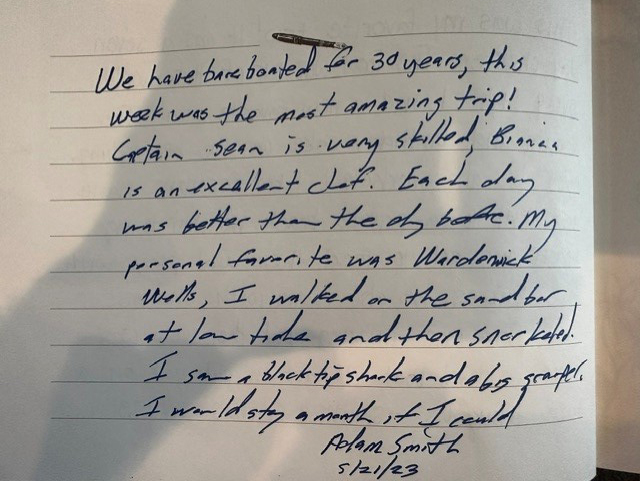 We have bareboated for 30 years, this
week was the most amazing trip!
Captain Sean is very skilled, Bianca
is an excellent chef. Each day
was better than the day before. My
personal favorite was Warderwick
Wells, I walked on the sand bar
at low tide and then snorkeled.
I saw a black tip shark and a big
I would stay a month if I could
Adam Smith
5/21/23